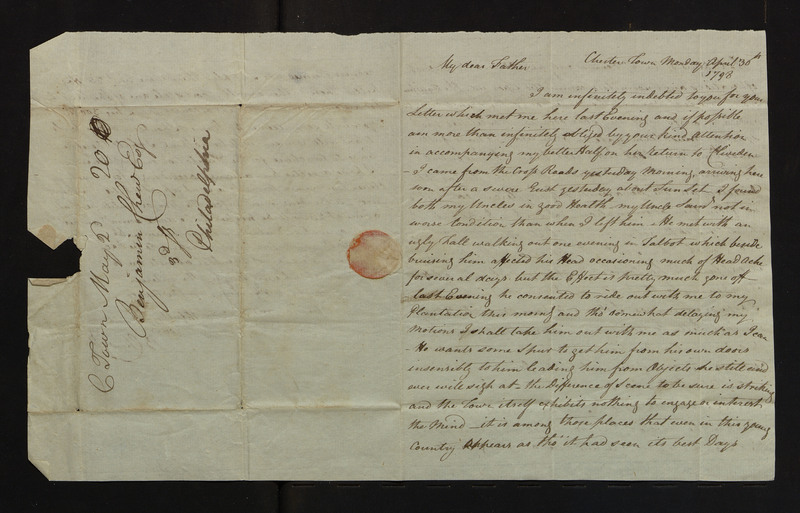 C Town May 2 20
Benjamin Chew Esq
3d St
Philadelphia
My dear Father Chester Town Monday April 30th
1798
I am infinitely indebted to you for your
Letter which met me here last Evening and if possible
am more than infinitely obliged by your kind Attention
in accompanying my better Half on her return to Cliveden
- I came from the Cross Roads yesterday Morning, arriving here
soon after a severe Gust yesterday about Sun Set I found
both my Uncles in good Health my Uncle Saml not in
worse Condition than when I left him - He met with an
ugly Fall walking out one evening in Talbot which beside
bruising him affected his Head occasioning much of Head Ache
for several days but the Effect is pretty much gone off -
last Evening he consented to ride out with me to my
Plantation this morng and tho' somewhat delaying my
Motions I shall take him out with me as much as I can
- He wants some Spur to get him from his own doors
insensibly to him leading him from Objects he still and
ever will sigh at the Difference of Scene to be sure is striking
and the Town itself exhibits nothing to engage or interest
the Mind - it is among those places that even in this young
Country appears as tho' it had seen its best Days